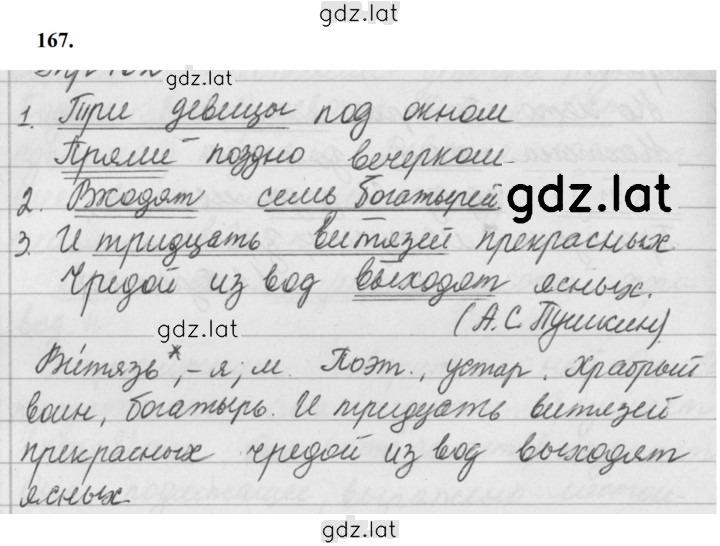 gdz.lat
167.
gdz.lat
1. Три девицы под окном
Пряли поздно вечерком.
2. Входят семь богатырей
gdz.lat
3. И тридцать витязей прекрасных
Чредой из вод выходят ясных.
gdz.lat
(А.С. Пушкин).
Ви́тязь*, -я, м. Поэт., устар. Храбрый
воин, богатырь. И тридцать витязей
прекрасных чредой из вод выходят
ясных.
gdz.lat